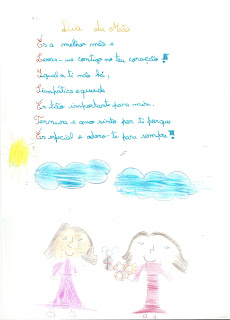 Dia da Mãe
És a melhor mãe e
Levas-me contigo no teu coração!
Igual a ti não há,
Simpática e querida
És tão importante para mim.
Ternura e amor sinto por ti porque
És especial e adoro-te para sempre!